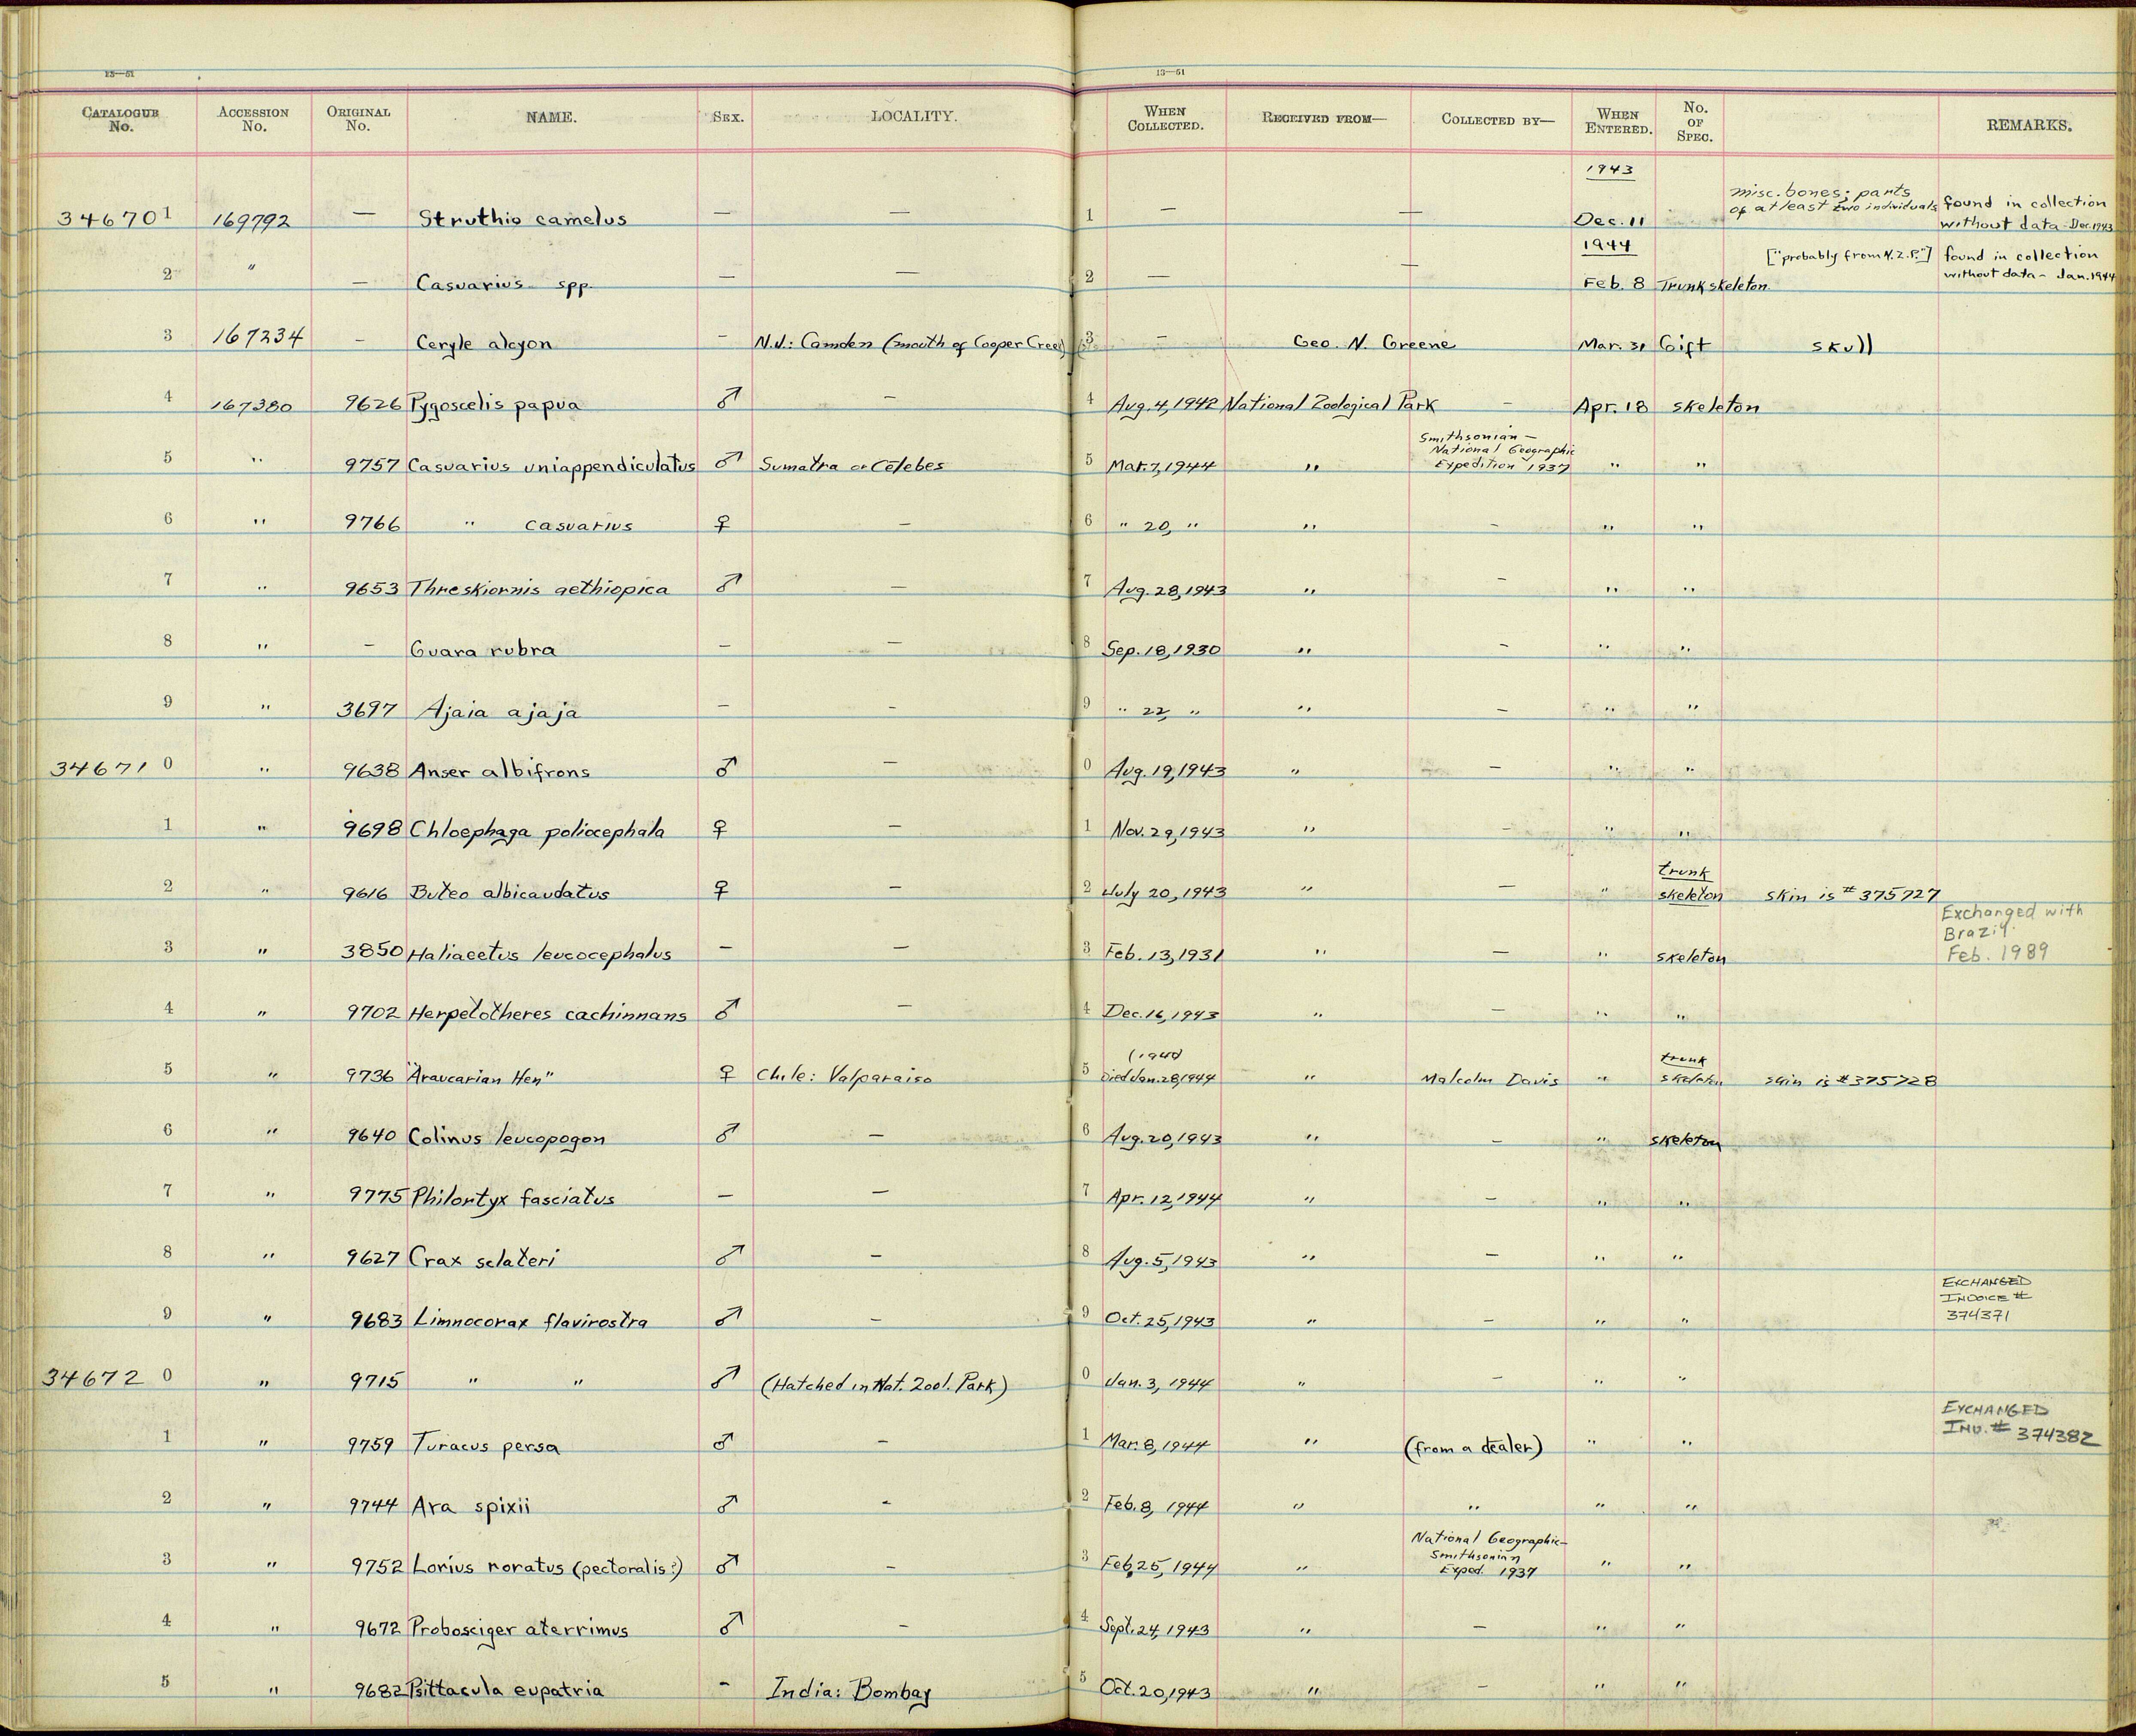 13—51 13—51
CATALOGUE No. ACCESSION No. ORIGINAL No. NAME. SEX. LOCALITY. WHEN COLLECTED. RECEIVED FROM— COLLECTED BY— WHEN ENTERED. No. OF SPEC. REMARKS.
346701 169792 — Struthio camelus — — 1 — — 1943 Dec. 11 misc. bones; parts of at least two individuals found in collection without data - Dec. 1943
2 " — Casuarius spp. — — 2 — — 1944 Feb. 8 Trunk skeleton ["probably from N.Z.P."] found in collection without data - Jan. 1944
3 167234 — Ceryle alcyon — N.J.: Camden (mouth of Cooper Creek) 3 — Geo. N. Greene Mar. 31 Gift skull
4 167380 9626 Pygoscelis papua ♂ — 4 Aug. 4, 1942 National Zoological Park — Apr. 18 skeleton
5 " 9757 Casuarius uniappendiculatus ♂ Sumatra or Celebes 5 Mar. 7, 1944 " Smithsonian – National Geographic Expedition 1937 " "
6 " 9766 " casuarius ♀ — 6 " 20, " " — " "
7 " 9653 Threskiornis aethiopica ♂ — 7 Aug. 28, 1943 " — " "
8 " — Guara rubra — — 8 Sep. 18, 1930 " — " "
9 " 3697 Ajaia ajaja — — 9 " 22, " " — " "
346710 " 9638 Anser albifrons ♂ — 0 Aug. 19, 1943 " — " "
1 " 9698 Chloephaga poliocephala ♀ — 1 Nov. 29, 1943 " — " "
2 " 9616 Buteo albicaudatus ♀ — 2 July 20, 1943 " — " trunk skeleton skin is # 375727
3 " 3850 Haliaeetus leucocephalus — — 3 Feb. 13, 1931 " — " skeleton Exchanged with Brazil. Feb. 1989
4 " 9702 Herpetotheres cachinnans ♂ — 4 Dec. 16, 1943 " — " "
5 " 9736 "Araucarian Hen" ♀ Chile: Valparaiso 5 (1940) Died Jan. 28, 1944 " Malcolm Davis " trunk skeleton skin is # 375728
6 " 9640 Colinus leucopogon ♂ — 6 Aug. 20, 1943 " — " skeleton
7 " 9775 Philortyx fasciatus — — 7 Apr. 12, 1944 " — " "
8 " 9627 Crax sclateri ♂ — 8 Aug. 5, 1943 " — " "
9 " 9683 Limnocorax flavirostra ♂ — 9 Oct. 25, 1943 " — " " EXCHANGED INVOICE # 374371
346720 " 9715 " " ♂ (Hatched in Nat. Zool. Park) 0 Jan. 3, 1944 " — " "
1 " 9759 Turacus persa ♂ — 1 Mar. 8, 1944 " (from a dealer) " " EXCHANGED INV. # 374382
2 " 9744 Ara spixii ♂ - 2 Feb. 8, 1944 " " " "
3 " 9752 Lorius roratus (pectoralis?) ♂ — 3 Feb. 25, 1944 " National Geographic– Smithsonian Exped. 1937 " "
4 " 9672 Probosciger aterrimus ♂ — 4 Sept. 24, 1943 " — " "
5 " 9682 Psittacula eupatria - India: Bombay 5 Oct. 20, 1943 " — " "